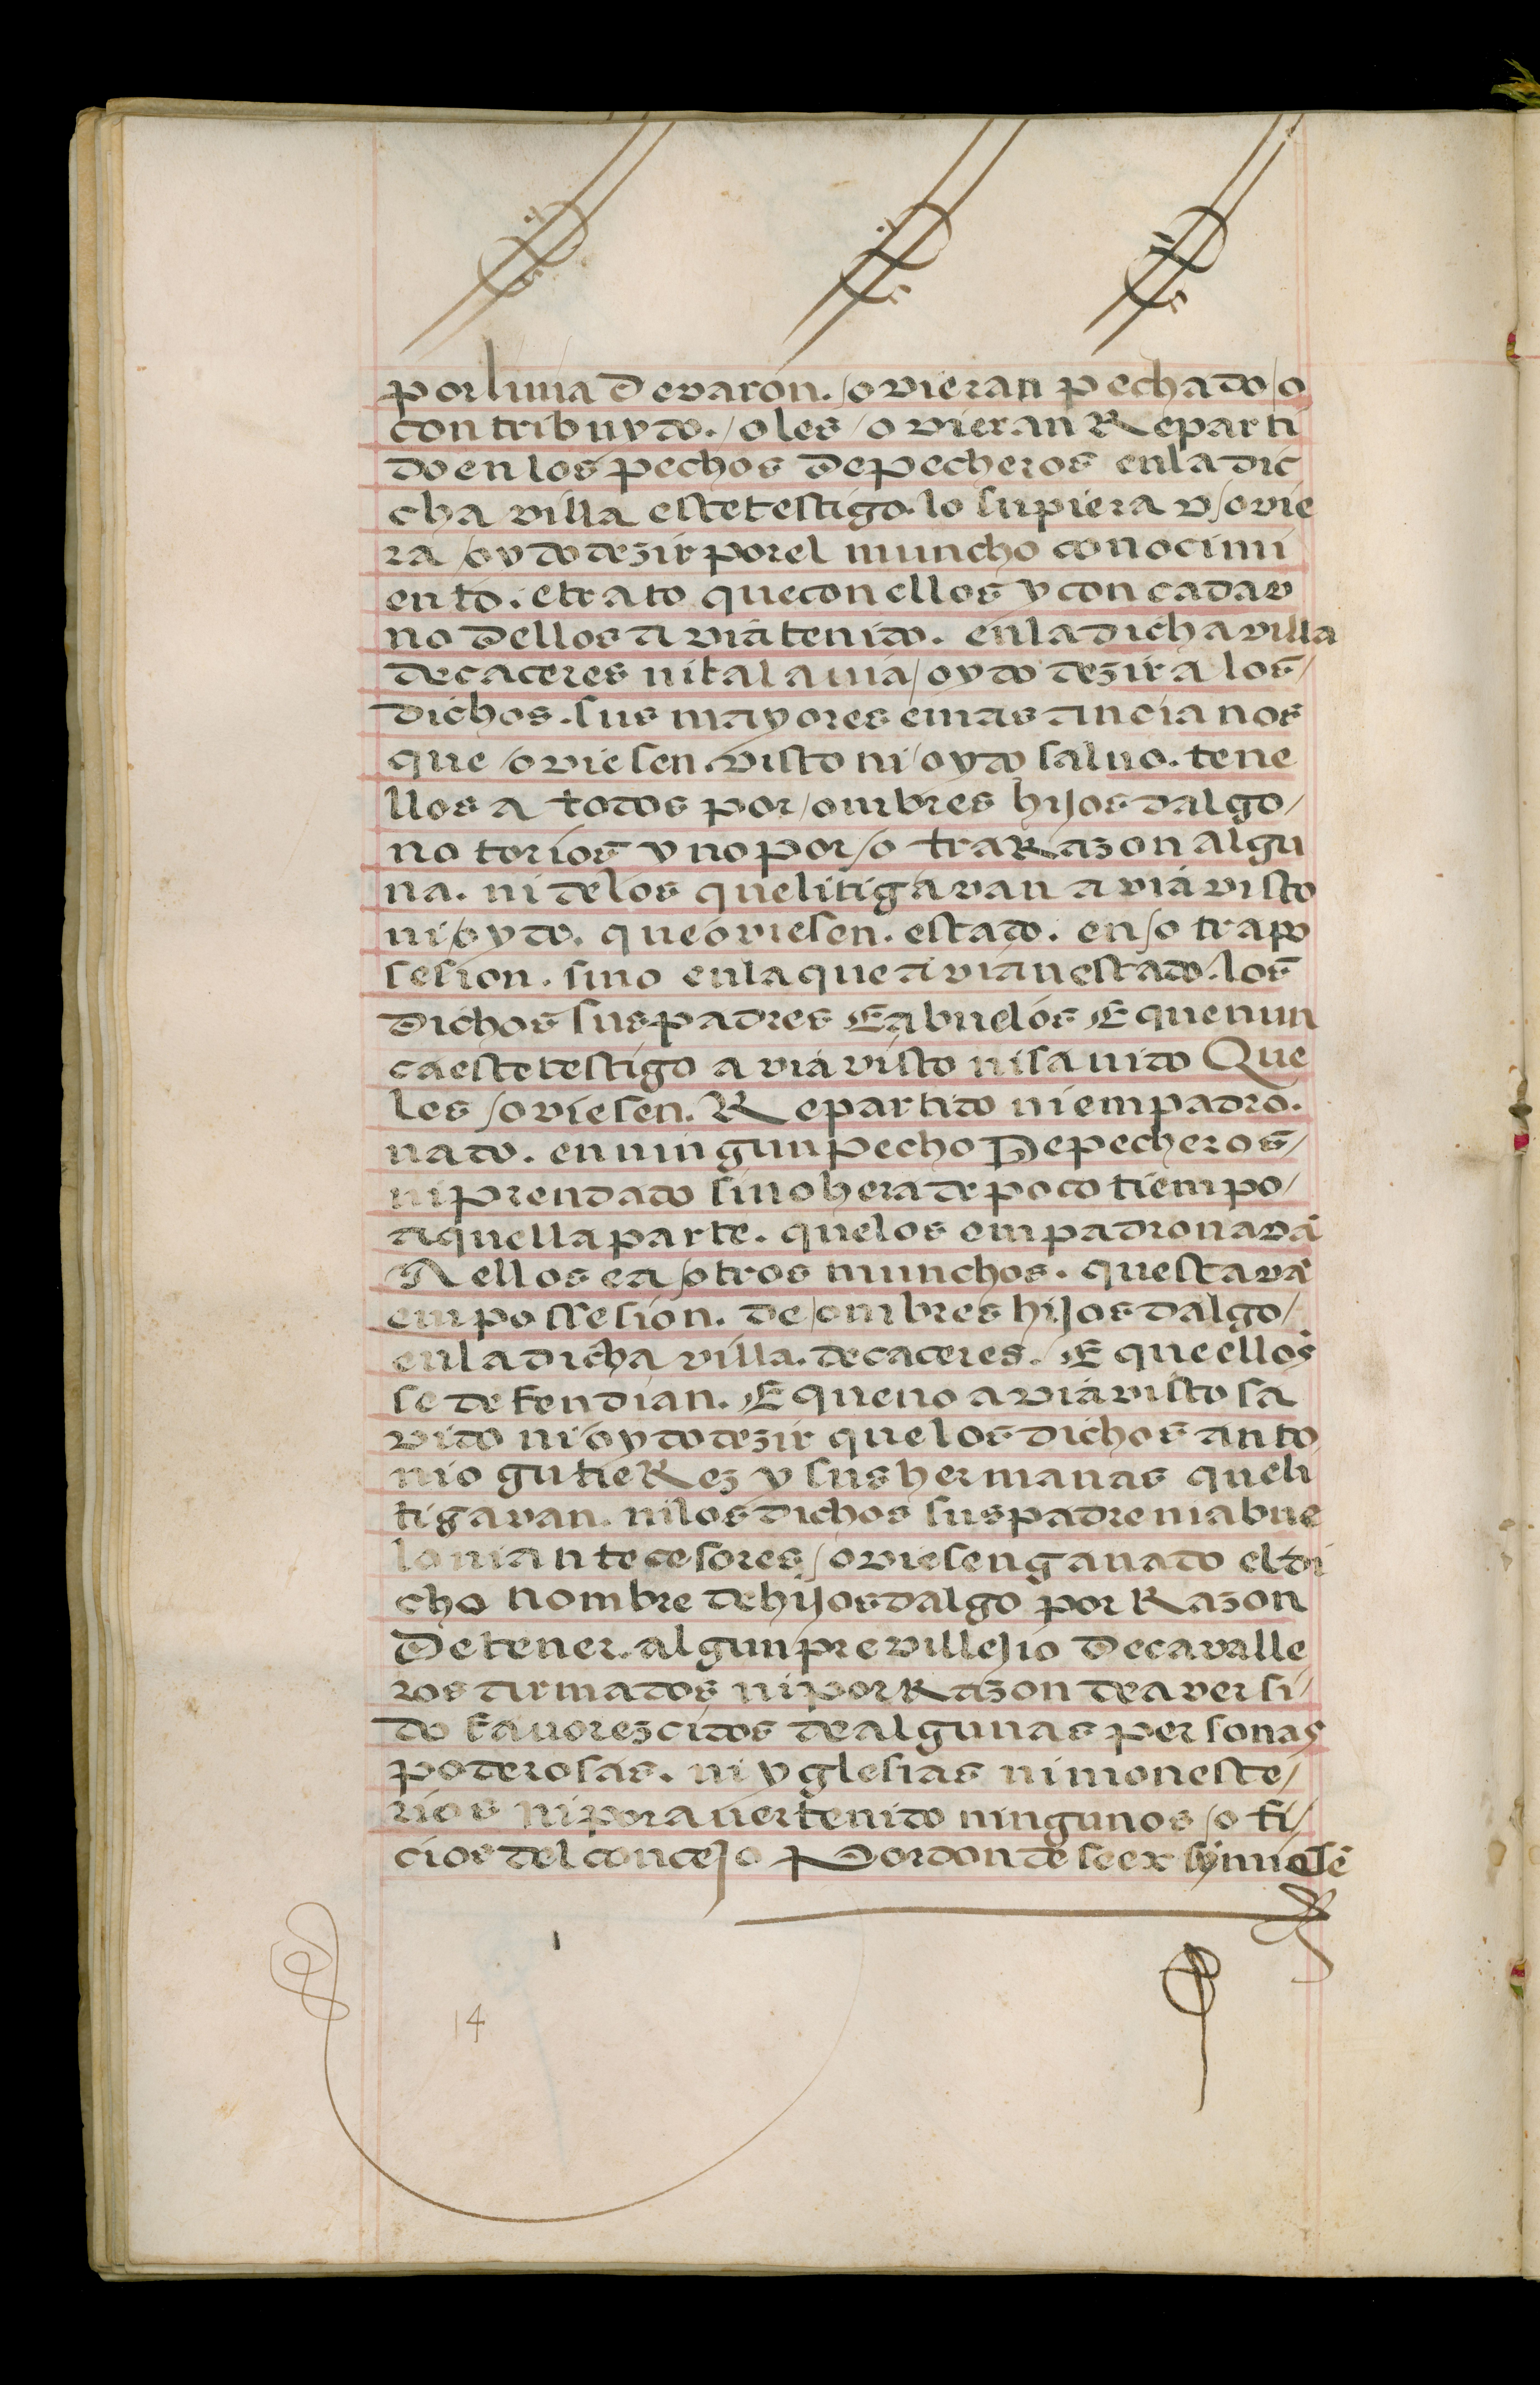 por linia de varon. /o vieran pechado /o
contribuydo. /o les /o vieran Reparti
do en los pechos de pecheros en la dic
cha villa este testigo. lo supiera v /o vie
ra /oydo dezir por el muncho conocimi
ento. e trato que con ellos y con cada v
no dellos a via tenido. en la dicha villa
de caceres ni tal avia /oydo dezir a los /
dichos. sus mayores e mas ancianos
que /o viesen. visto ni /oydo salvo. tene
llos a todos por /ombres hijosdalgo /
notorios y no por /otra Razon algu
na. ni de los que litigavan a via visto
ni /oydo. que oviesen. estado. en /otra po
sesion. sino en la que a vian estado. los
dichos sus padres E abuelos E que nun
ca este testigo a via visto ni savido Que
les /oviesen. Repartido ni empadro.
nado. en ningun pecho De pecheros /
ni prendado sino hera de poco tiempo /
aquella parte. que los empadronavã
A ellos e a /otros munchos. questavã
em possesion. de /ombres hijosdalgo /
en la dicha villa. de caceres. E que ellos
se defendian. E que no a via visto sa
vido ni oydo dezir que los dichos anto
nio gutieRez y sus hermanas que li
tigavan. ni los dichos sus padre ni abue
lo ni antecesores /oviesen ganado el di
cho nombre de hijosdalgo por Razon
De tener. algun previllejio De cavalle
ros armados ni por Razon de aver si /
do favorezcidos de algunas personas
poderosas. ni yglesias ni moneste /
rios ni por aver tenido ningunos /ofi /
cios del concejo Por donde se ex
14